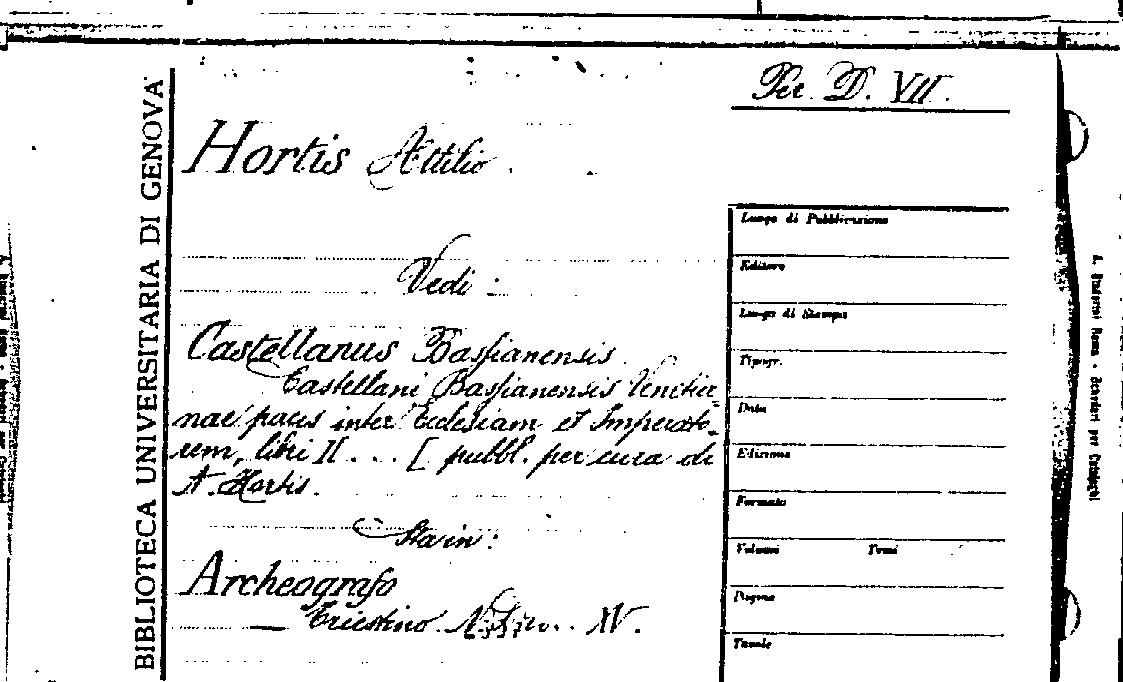 BIBLIOTECA UNIVERSITARIA DI GENOVA
Per. D. VII.
Hortis Attilio.
Vedi:
Castellanus Bassianensis
Castellani Bassianensis Venetia-
nae pacis inter Ecclesiam et Imperato-
rem, libri II... [pubbl. per cura di
A. Hortis.
Sta in:
Archeografo
Triestino XV.
Luogo di Pubblicazione
Editore
Luogo di Stampa
Tipogr.
Data
Edizione
Formato
Volumi Tomi
Pagine
Tavole
Staderini Roma - Schedari per Cataloghi